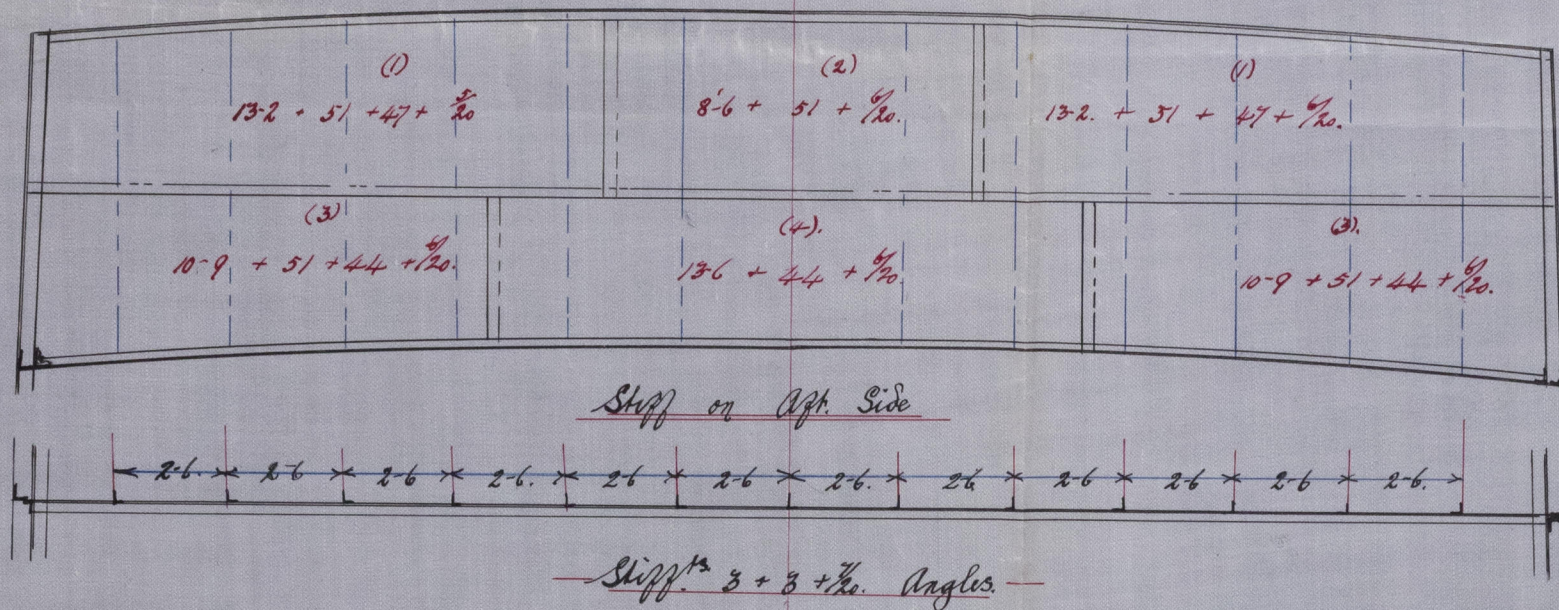 (1) (2) (1)
13-2 + 51 + 47 + 5/20 8'-6 + 51 + 6/20. 13-2. + 51 + 47 + 6/20.
(3) (4). (3).
10-9 + 51 + 44 + 6/20. 13-6 + 44 + 6/20. 10-9 + 51 + 44 + 6/20.
Stiff on Aft. Side
2-6. 2-6 2-6 2-6. 2-6 2-6 2-6. 2-6 2-6 2-6 2-6 2-6.
Stiffrs. 3 + 3 + 7/20. Angles.